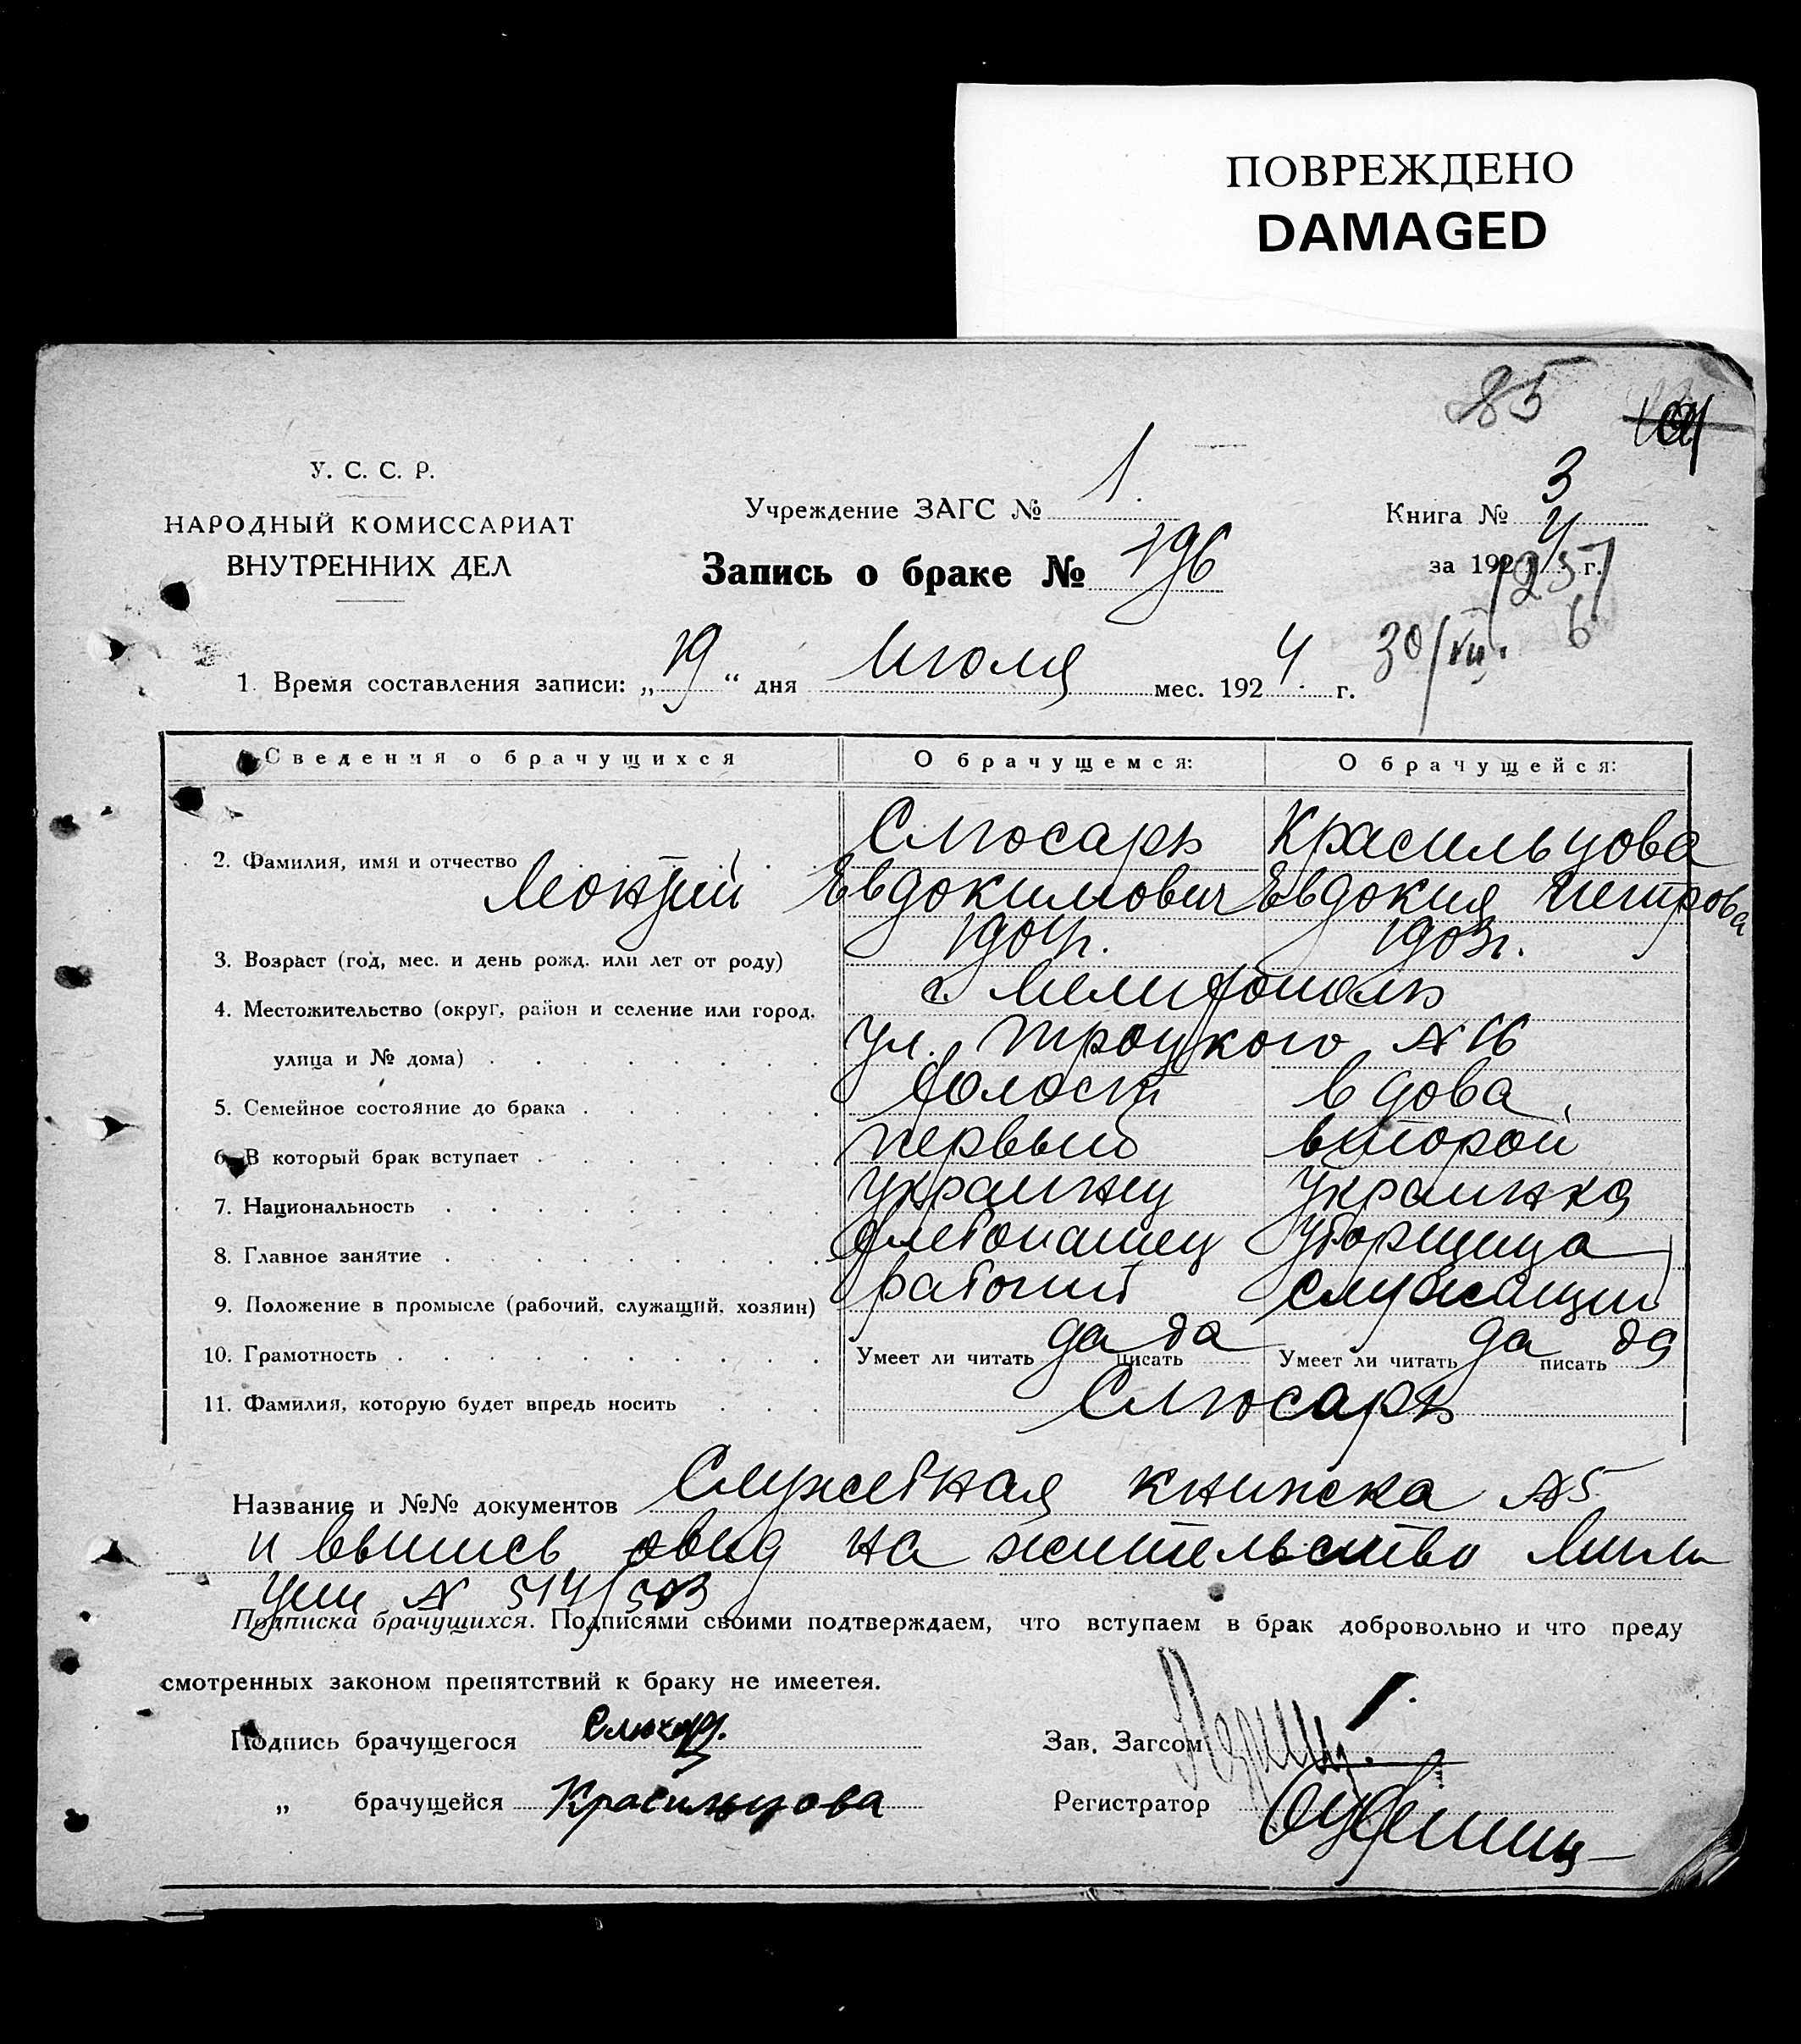 ПОВРЕЖДЕНО
DAMAGED
85
У. С. С. Р.
НАРОДНЫЙ КОМИССАРИАТ
ВНУТРЕННИХ ДЕЛ
Учреждение ЗАГС № 1.
Книга № 3
Запись о браке № 196
за 1924 г.
1. Время составления записи: „19“ дня Июля мес. 1924 г.
30/VII.
Сведения о брачущихся О брачущемся: О брачущейся:
Слюсарь Красильцова
2. Фамилия, имя и отчество
Леонтий Евдокимович Евдокия Петрова
3. Возраст (год, мес. и день рожд. или лет от роду) 1904г. 1903г.
4. Местожительство (округ, район и селение или город, г. Мелитополь
улица и № дома) ул. Троцкого № 16
5. Семейное состояние до брака холост вдова
6. В который брак вступает первый второй
7. Национальность украинец Украинка
8. Главное занятие хлебопашец Уборщица
9. Положение в промысле (рабочий, служащий, хозяин) рабочий служащий
10. Грамотность Умеет ли читать да писать да Умеет ли читать да писать да
11. Фамилия, которую будет впредь носить Слюсарь
Название и №№ документов Служебная книжка №5
и выпись на жительство Мили
ции № 514/503
Подписка брачущихся. Подписями своими подтверждаем, что вступаем в брак добровольно и что преду
смотренных законом препятствий к браку не имеетея.
Подпись брачущегося Слюсар.
Зав. Загсом
„ брачущейся Красильцова
Регистратор